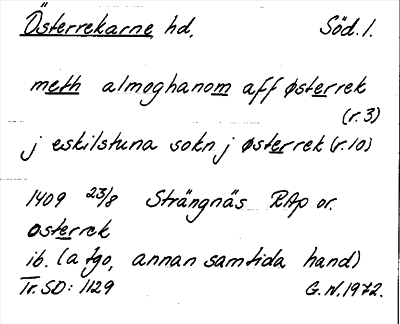 Österrekarne hd, Söd. l.
meth almoghanom aff østerrek
(r. 3)
j eskilstuna sokn j østerrek (r. 10)
1409 23/8 Strängnäs RAp or.
osterrek
ib. (a tgo, annan samtida hand)
Tr. SD: 1129 G. N. 1972.